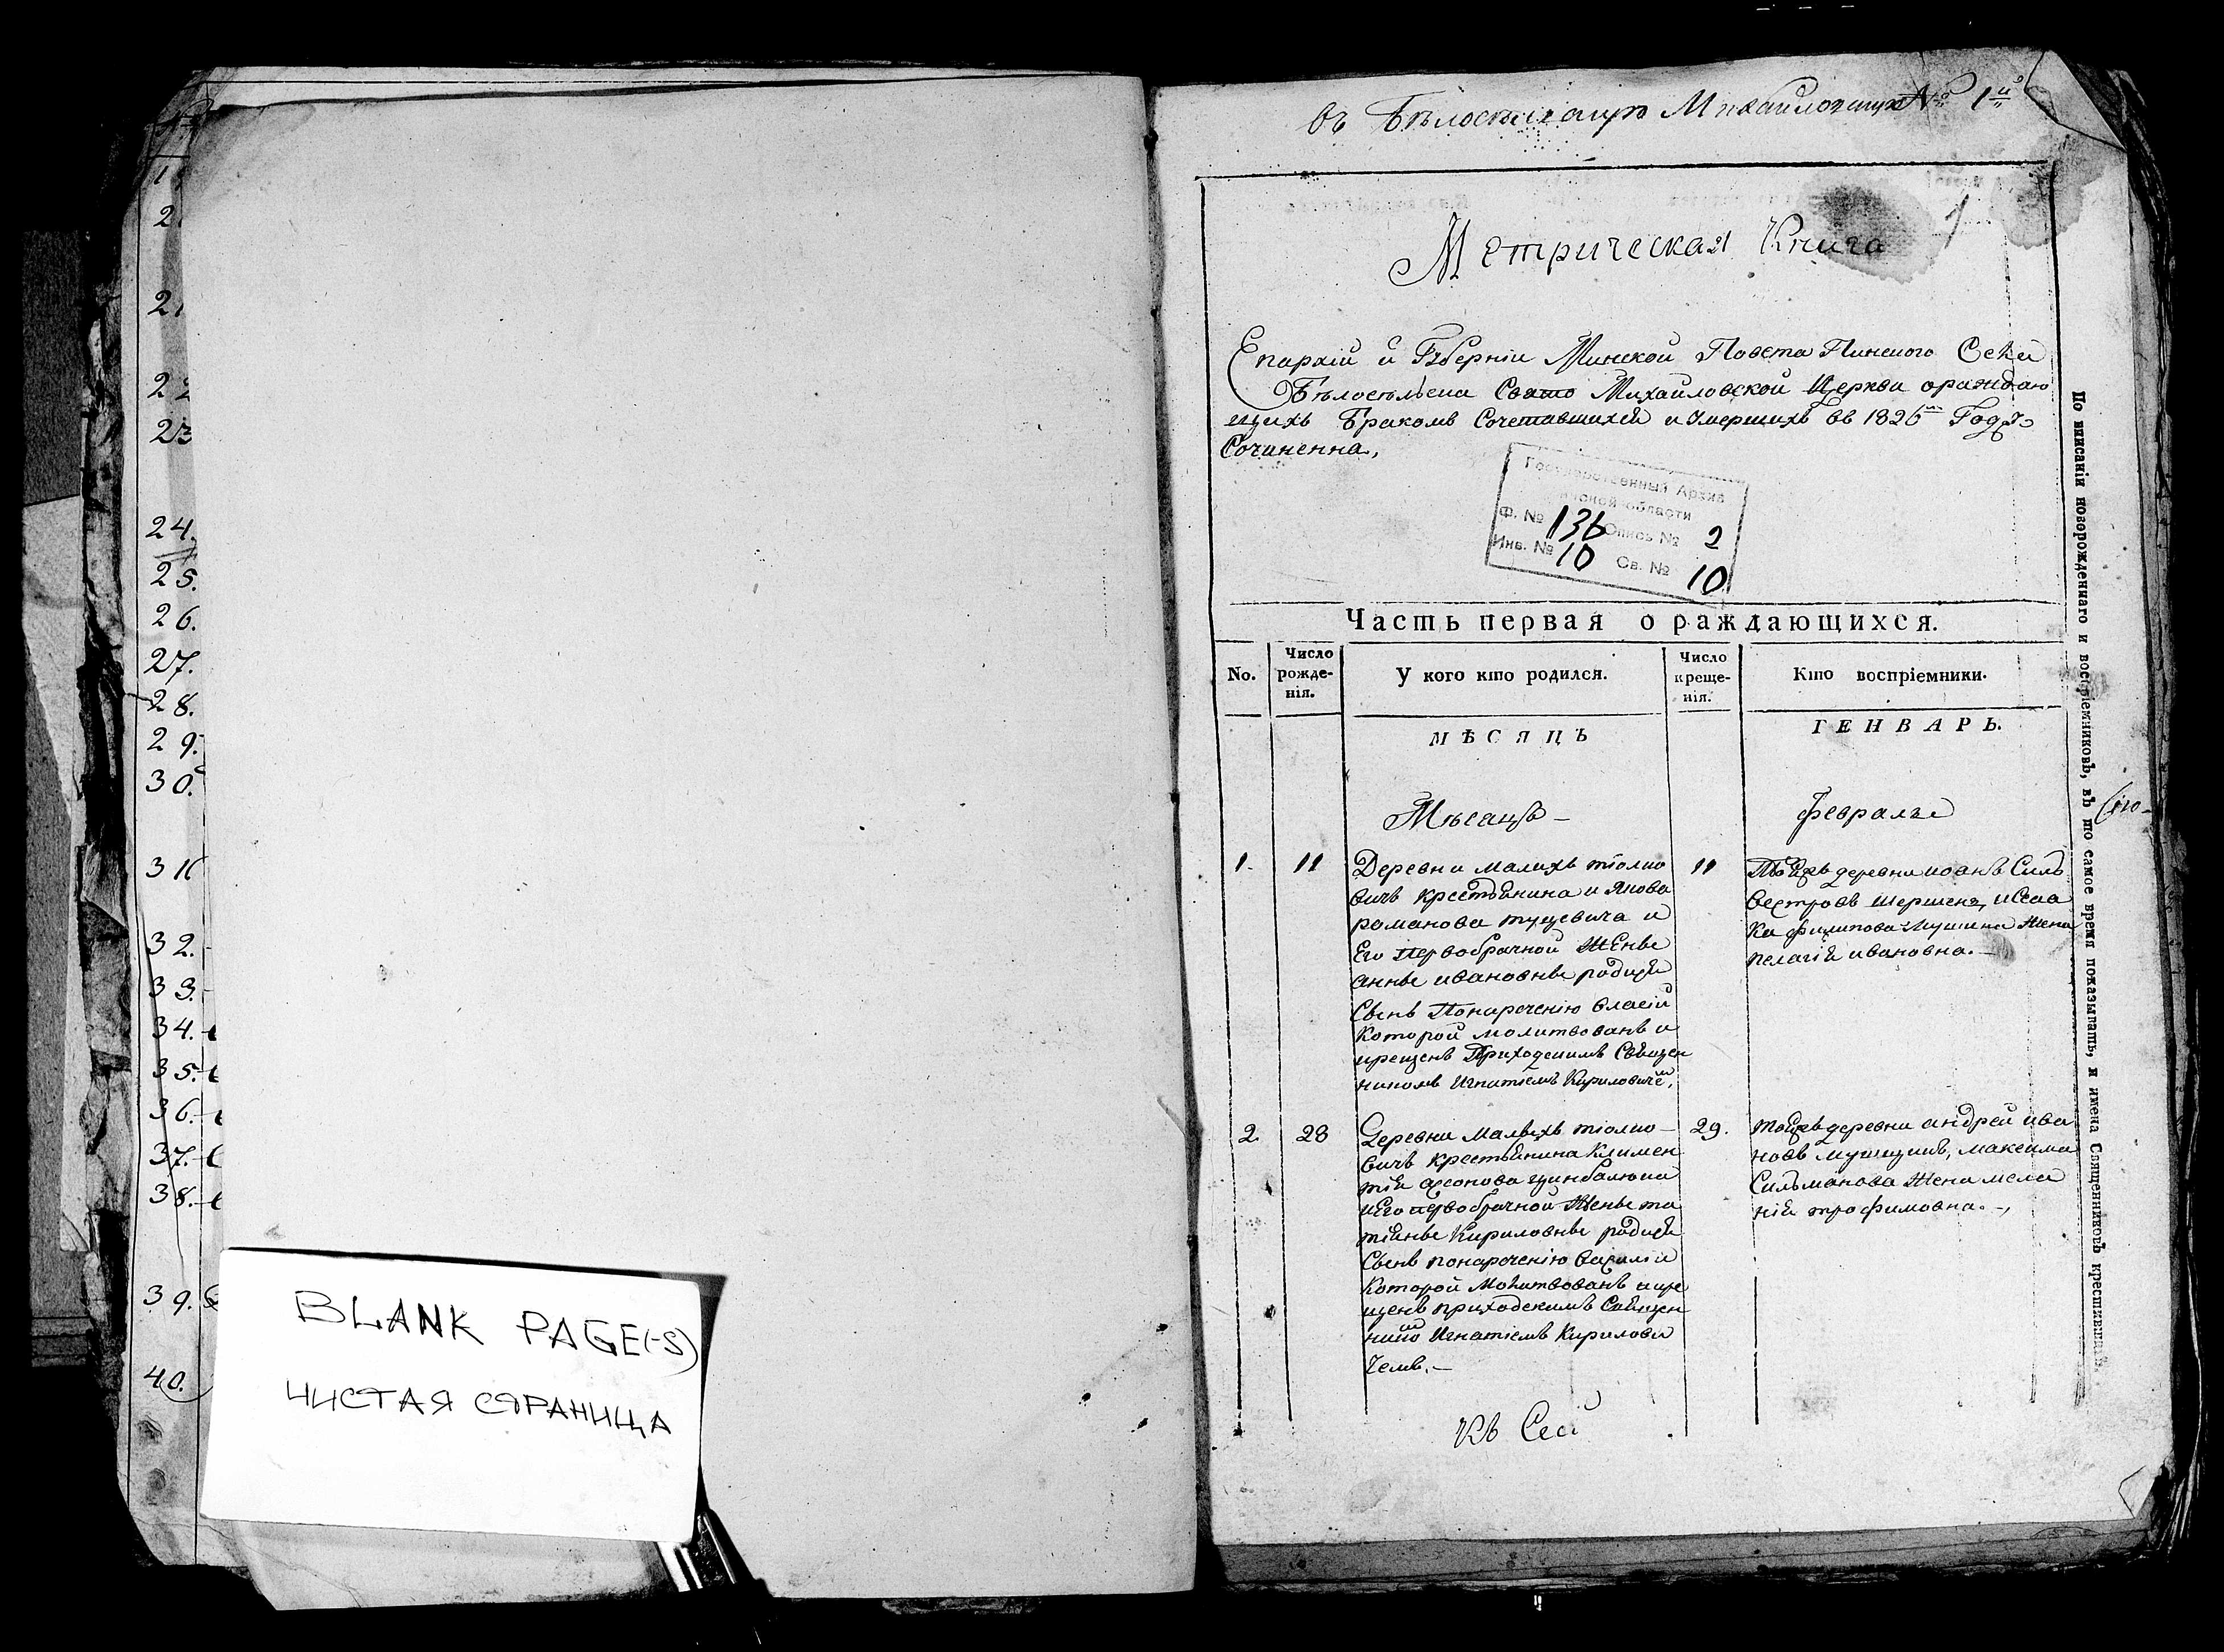 1
2
2
22
23
24.
25.
26.
27.
28.
29.
30.
31
32.
33.
34.
35.
36.
37.
38.
39.
40.
BLANK PAGE(-S)
ЧИСТАЯ СТРАНИЦА
въ № 1й
1
Метрическая Книга
Епархiи и Губернiи Минской Повета Пинского Села
Свято Михайловской Церкви ораждаю
щихъ Бракомъ Сочетавшихся и Умершихъ въ 1826 Году
Сочиненна,
Государственный Архив
области
Ф. № 136 Опись № 2
Инв. № 10 Св. № 10
Часть первая о раждающихся.
No. Число рожденiя. У кого кто родился. Число крещенiя. Кто воспрiемники.
МѢСЯЦЪ ГЕНВАРЬ.
Мѣсацъ – Февраль
1. 11 11
Деревни малыхъ
вичъ крестьянина и Якова
романова и
Его первобрачной Жены
анны ивановны родися
Сынъ Понаречению власiй
Которой молитвованъ и
крещенъ Приходскимъ Священ
никомъ Игнатiемъ Кириловичем.
деревни иоанъ Силь
вестровъ
ка филипова Жена
пелагiя ивановна. –
2. 28 29.
Деревни Малыхъ
вичъ крестьянина Климен
тiя
и Его первобрачной Жены та
тiяны Кириловны родися
Сынъ понаречению василiй
Которой Молитвованъ и кре
щенъ приходскимъ Священ
нико Игнатiемъ Кирилови
чемъ. –
деревни андрей ива
новъ максима
Жена мела
нiя трофимовна. –
къ Сей
По вписанiи новорожденнаго и воспрiемниковъ, въ то самое время показывать, и имена Священниковъ крестившихъ.